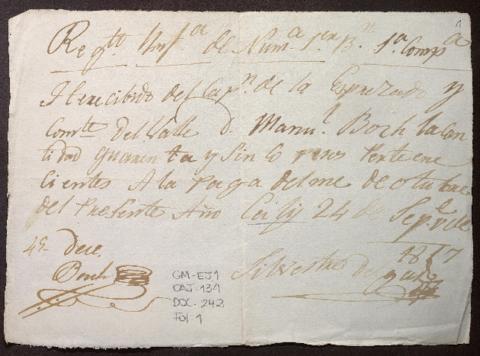 Regto Ynfa de Numa 1er Bn 1a Compa
He recibido del Capn de la Esprezado y
Comte del Valle d. Manul Boch la can
tidad quarenta y Sinco pesos Perte ene
cientes A la paga del me de otubre
del Presente Año 24 de Sepe
45
Boch
1817
Silvestre de
GM-EJ1
CAJ-131
DOC-242
Fol-1